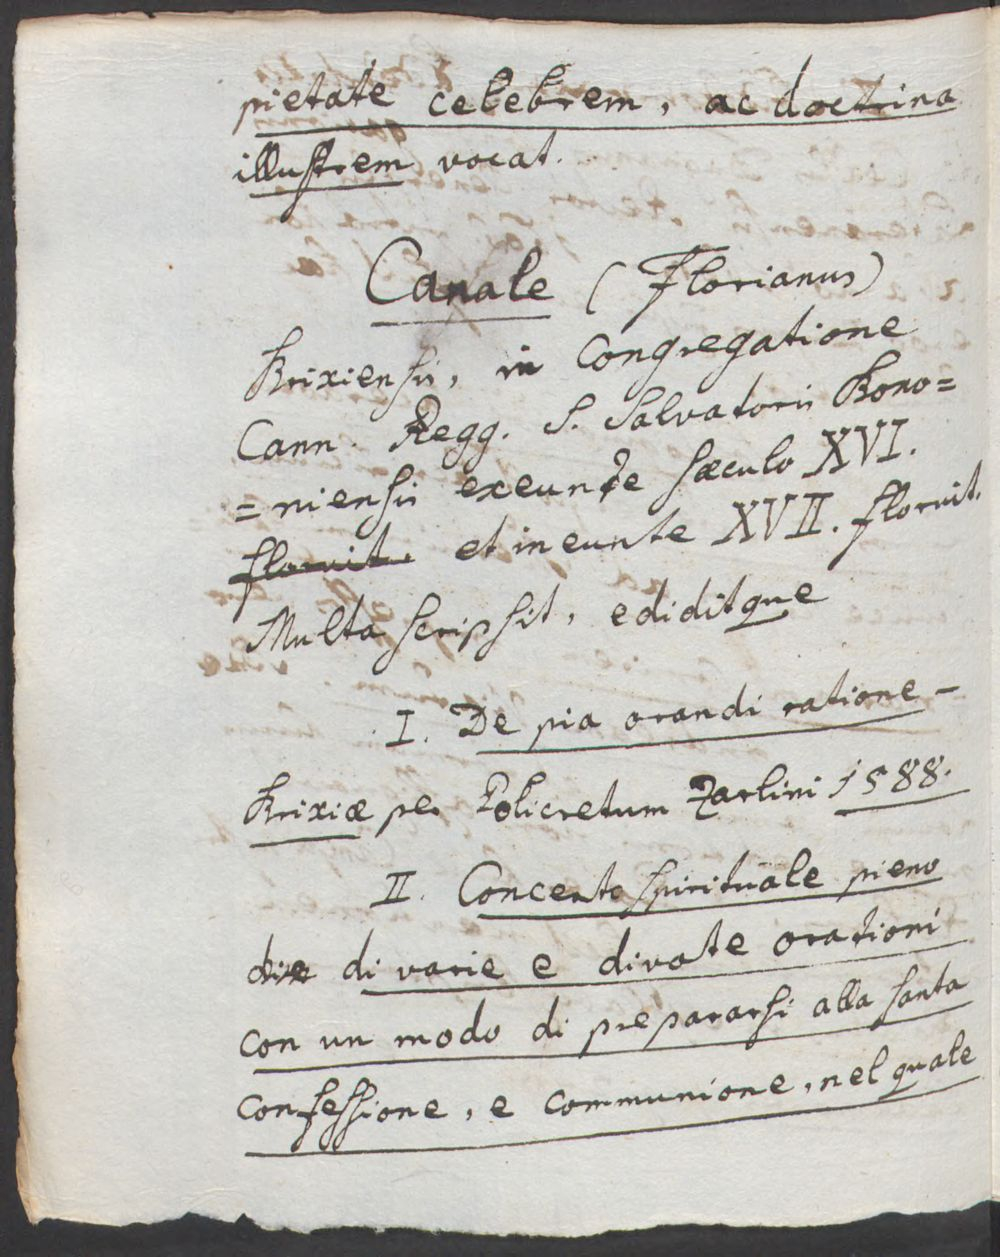 pietate celebrem, ac doctrina
illustrem vocat.
Canale (Florianus)
Brixiensis, in Congregatione
Cann. Regg. S. Salvatoris Bono=
=niensis exeunte sæculo XVI.
floruit. et ineunte XVII. floruit.
Multa scripsit, ediditque
I. De pia orandi ratione -
Brixiæ per Policretum Zarlini 1588.
II. Concento spirituale pieno
di varie e divote orationi
con un modo di prepararsi alla santa
confessione, e communione, nel quale